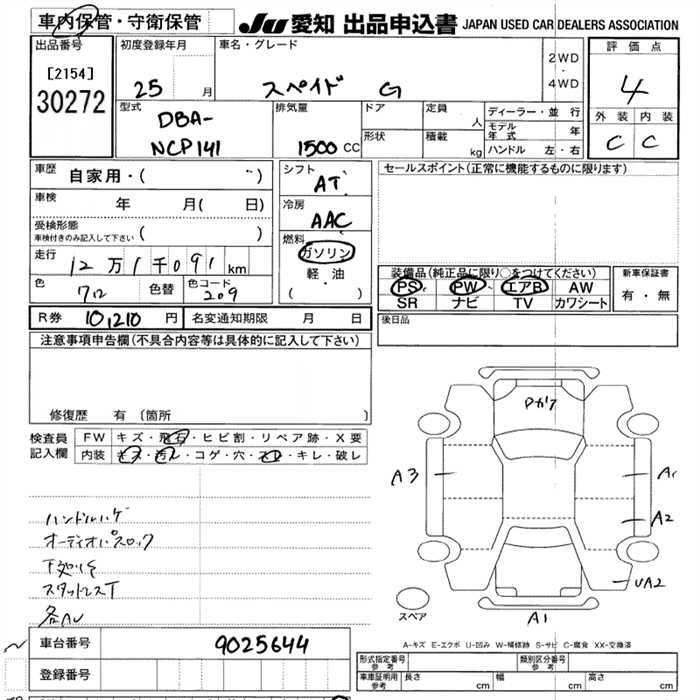 車内保管・守衛保管
JU 愛知 出品申込書 JAPAN USED CAR DEALERS ASSOCIATION
出品番号
[2154]
30272
初度登録年月
25 月
車名・グレード
スペイド G
2WD
・
4WD
評価点
4
外装 内装
C C
型式
DBA-
NCP141
排気量
1500 CC
ドア
形状
定員 人
積載 kg
ディーラー・並行
モデル年式 年
ハンドル 左・右
車歴 自家用・( )
車検 年 月( 日)
受検形態
車検付きのみ記入して下さい ( )
走行 12万1千091km
色 712 色替 色コード 209
シフト
AT
冷房
AAC
燃料
ガソリン
軽・油
( )
セールスポイント(正常に機能するものに限ります)
装備品(純正品に限り○をつけてください)
PS PW エアB AW
SR ナビ TV カワシート
新車保証書
有・無
R券 10,210 円 名変通知期限 月 日
後日品
注意事項申告欄(不具合内容等は具体的に記入して下さい)
修復歴 有 〔箇所 〕
検査員
記入欄
FW キズ・飛石・ヒビ割・リペア跡・X要
内装 キズ・汚レ・コゲ・穴・スレ・キレ・破レ
ハンドルハゲ
オーディオパスロック
スタッドレスT
各AU
A3
A1
A2
UA2
A1
スペア
車台番号 9025644
登録番号
A-キズ E-エクボ U-凹み W-補修跡 S-サビ C-腐食 XX-交換済
形式指定番号
参考
類別区分番号
参考
車庫証明用
参考
長さ cm 幅 cm 高さ cm